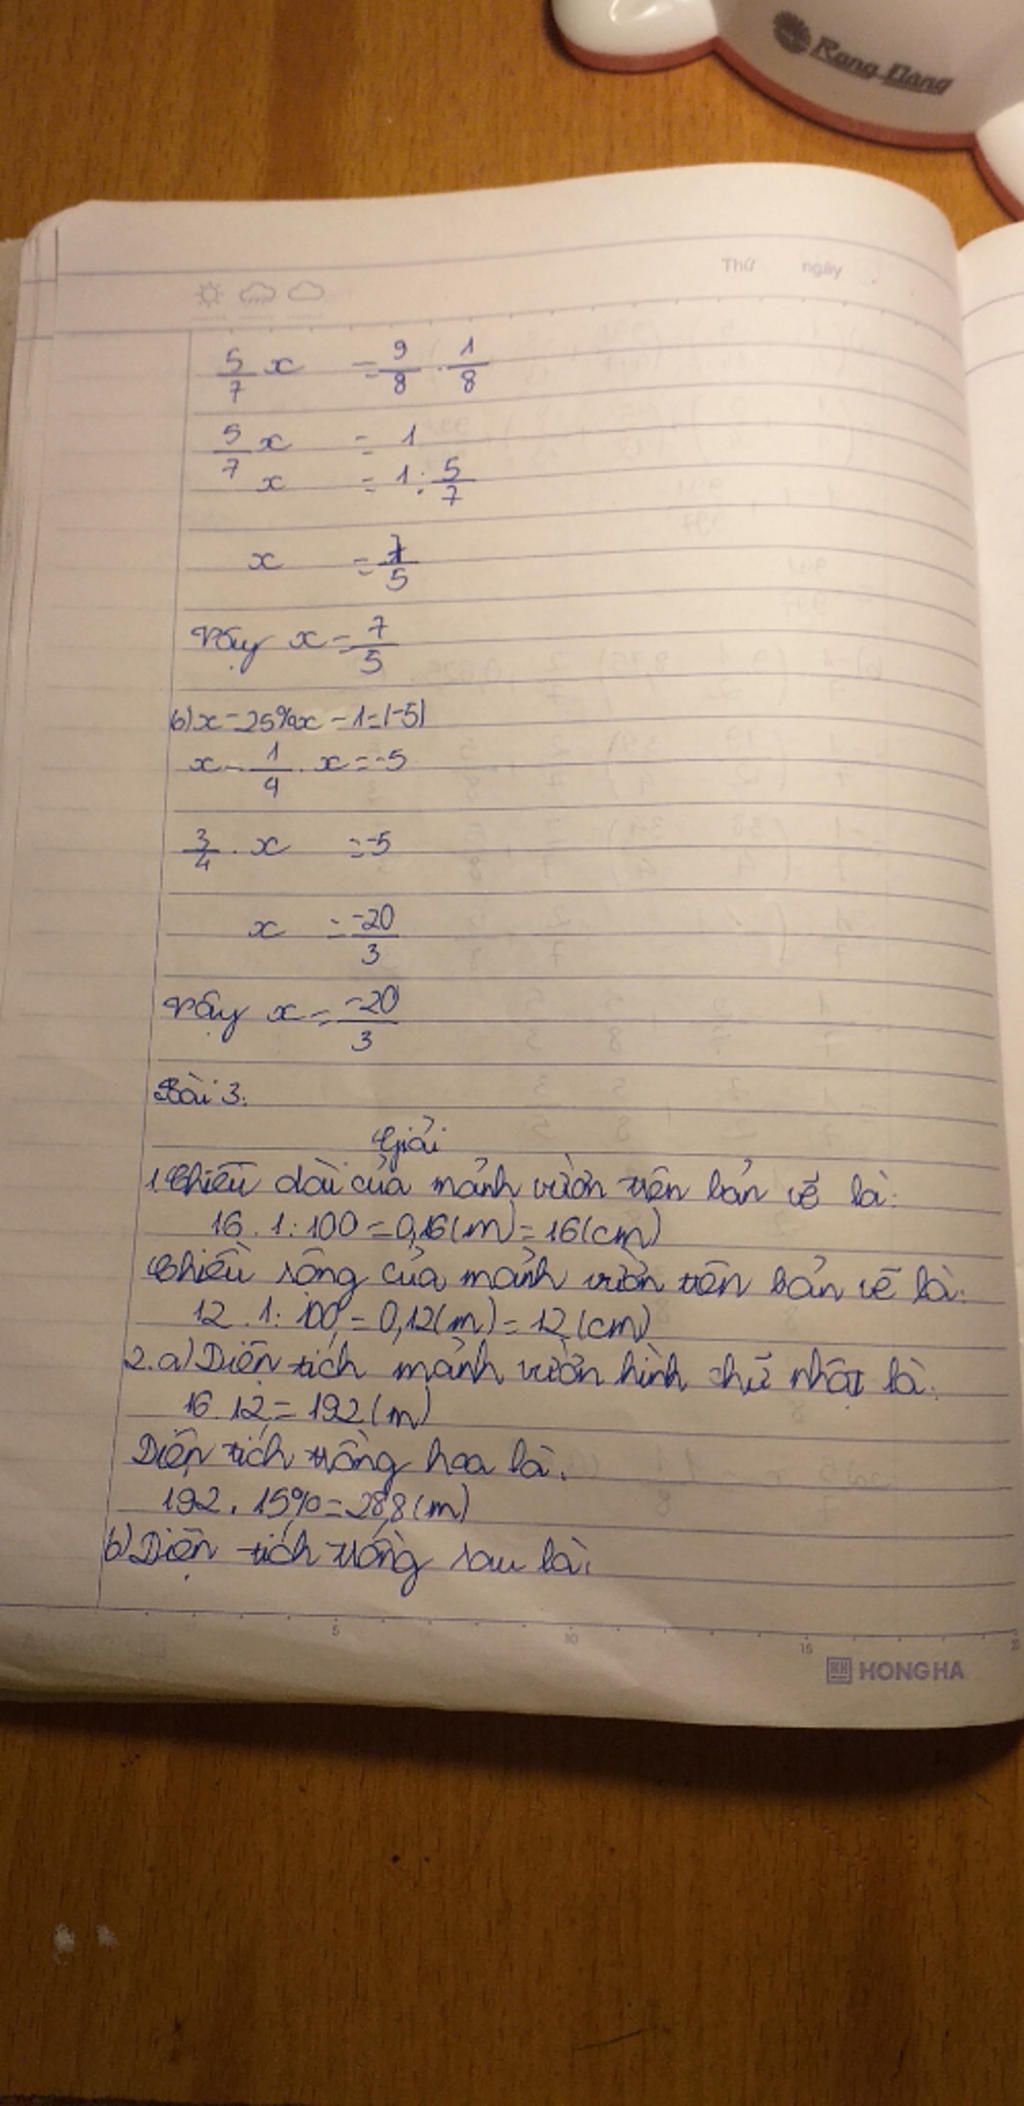 Rạng Đông
Thứ ngày
5/7 x = 9/8 . 1/8
5/7 x = 1
x = 1 : 5/7
x = 7/5
Vậy x = 7/5
b) x - 25% x - 1 = (-5)
x - 1/4 . x = -5
3/4 . x = -5
x = -20/3
Vậy x = -20/3
Bài 3.
Giải
1. Chiều dài của mảnh vườn trên bản vẽ là:
16 . 1 : 100 = 0,16 (m) = 16 (cm)
Chiều rộng của mảnh vườn trên bản vẽ là:
12 . 1 : 100 = 0,12 (m) = 12 (cm)
2. a) Diện tích mảnh vườn hình chữ nhật là:
16 . 12 = 192 (m)
Diện tích trồng hoa là:
192 . 15% = 28,8 (m)
b) Diện tích trồng rau là:
5 10 15
HH HONG HA